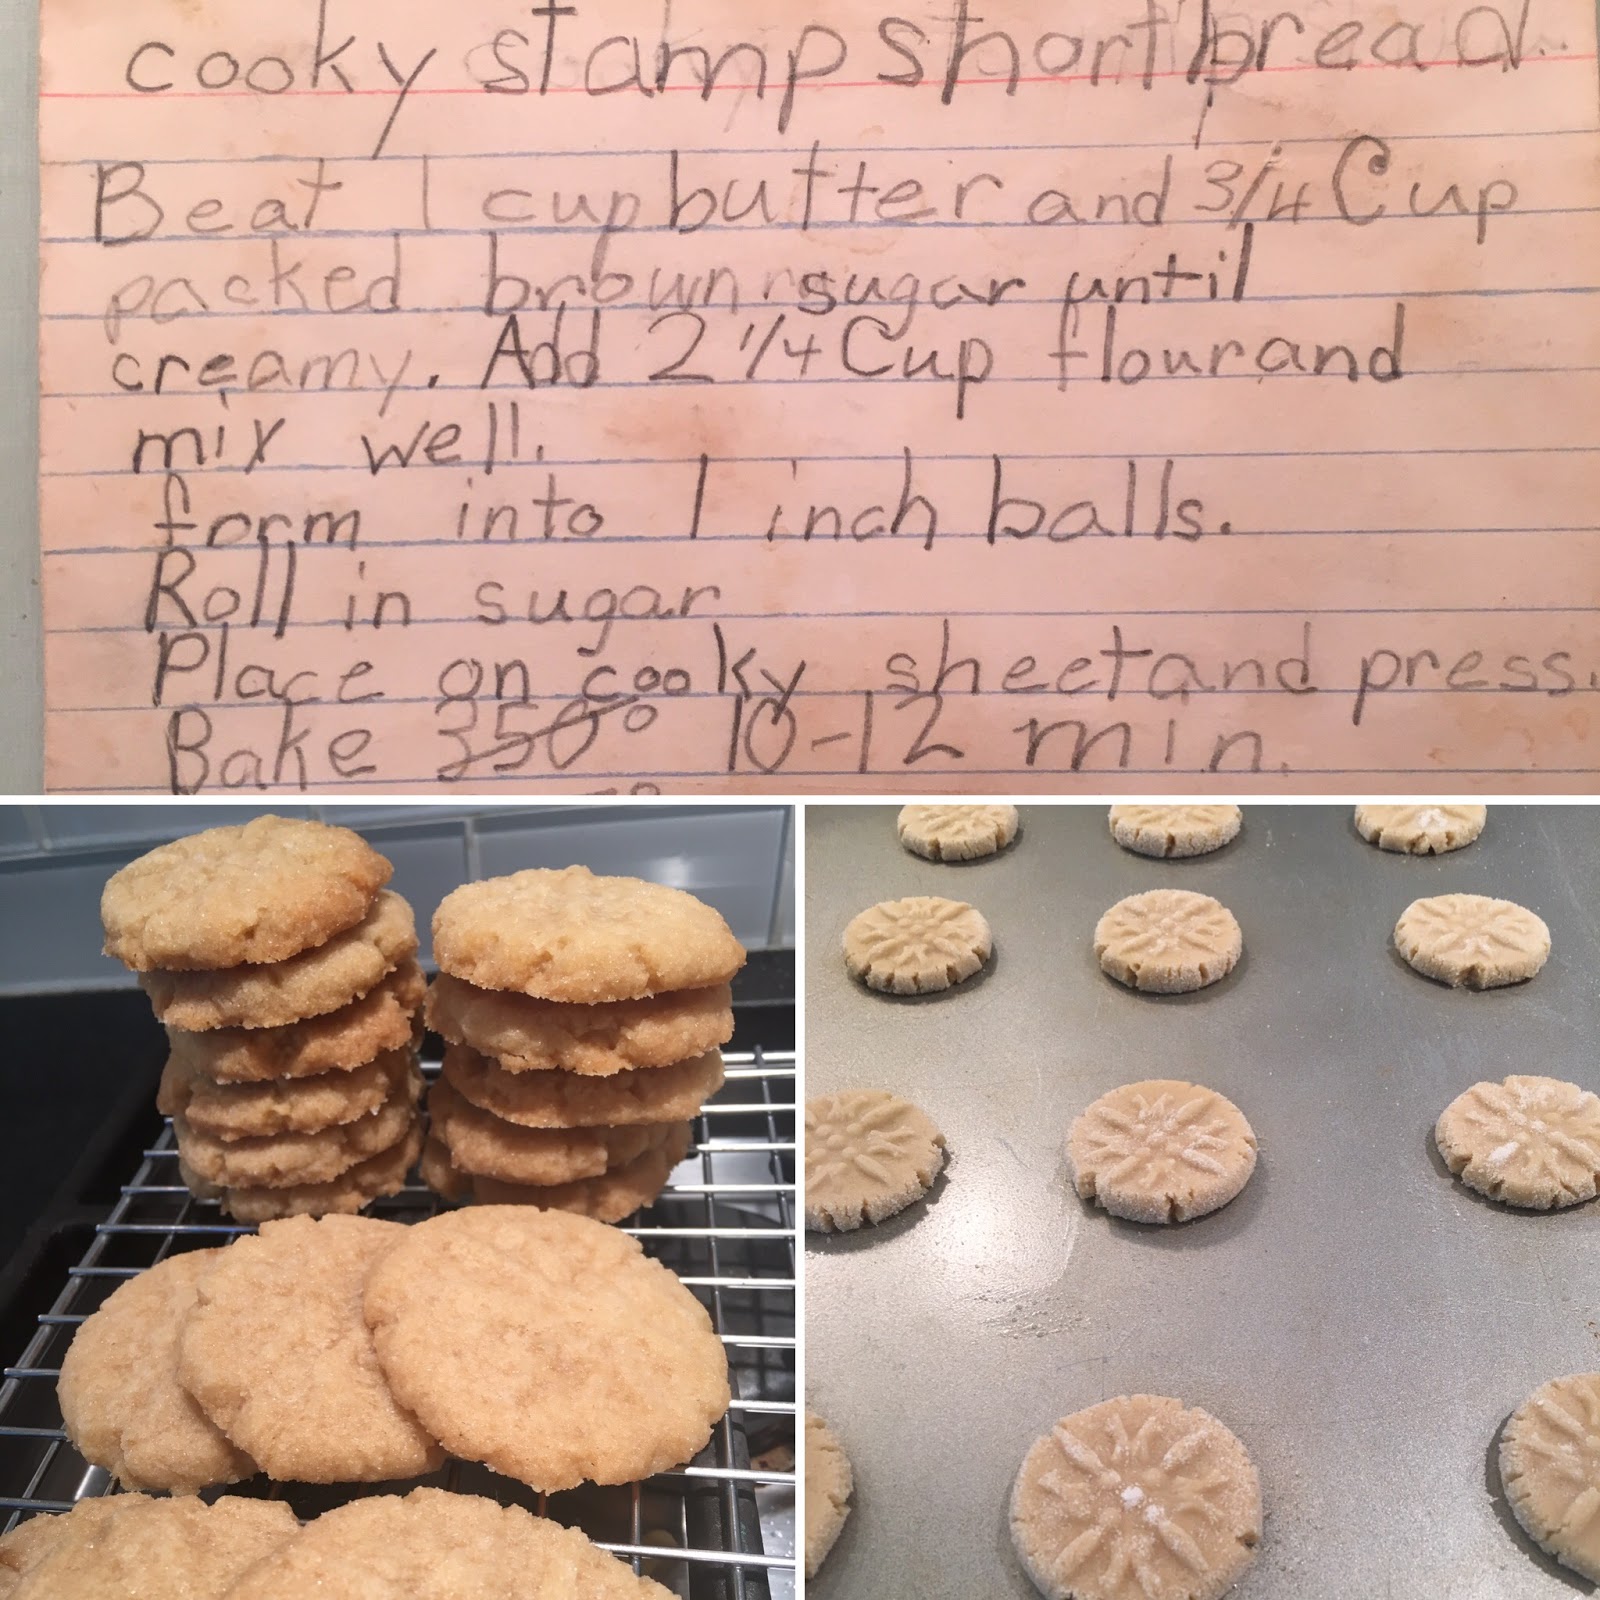 cooky stamp shortbread.
Beat 1 cup butter and 3/4 Cup
packed brown sugar until
creamy. Add 2 1/4 Cup flour and
mix well.
form into 1 inch balls.
Roll in sugar
Place on cooky sheet and press.
Bake 350° 10-12 min.